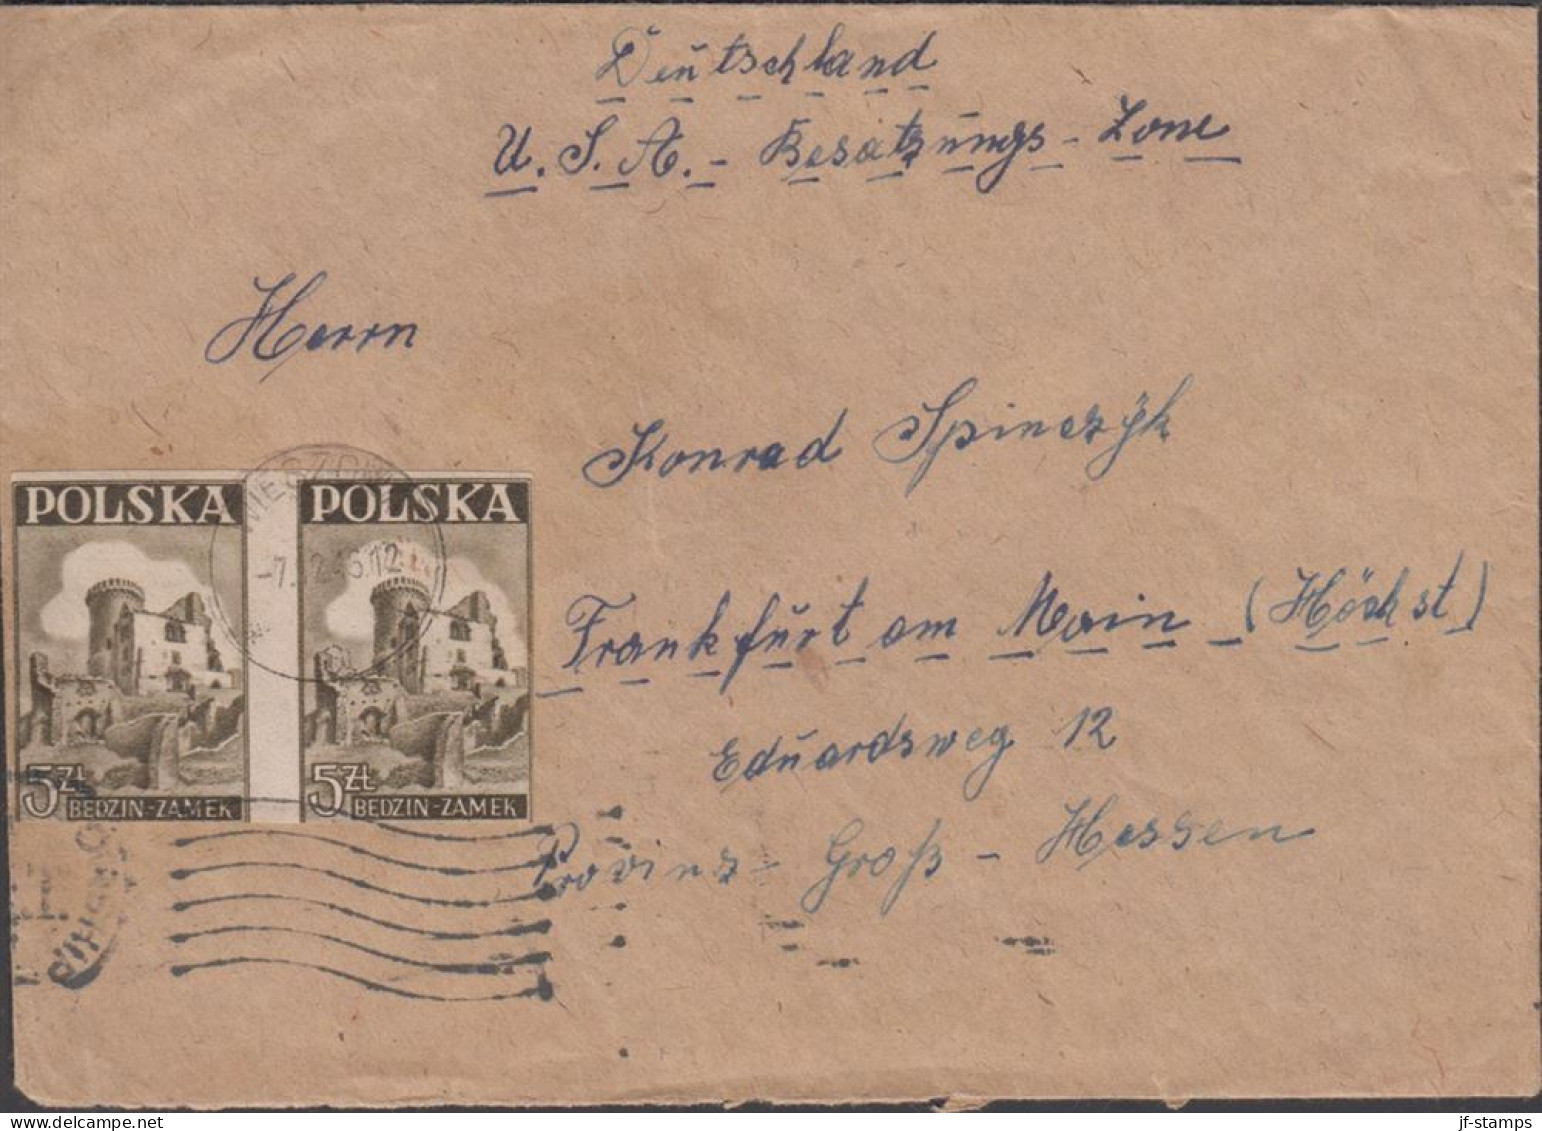 Deutschland
U.S.A. - Besatzungs - Zone
Herrn
Konrad Spinczÿk
Frankfurt am Main (Höchst)
Eduardsweg 12
Provinz - Groß - Hessen
POLSKA POLSKA
5 Zł BĘDZIN-ZAMEK 5 Zł BĘDZIN-ZAMEK
jf-stamps